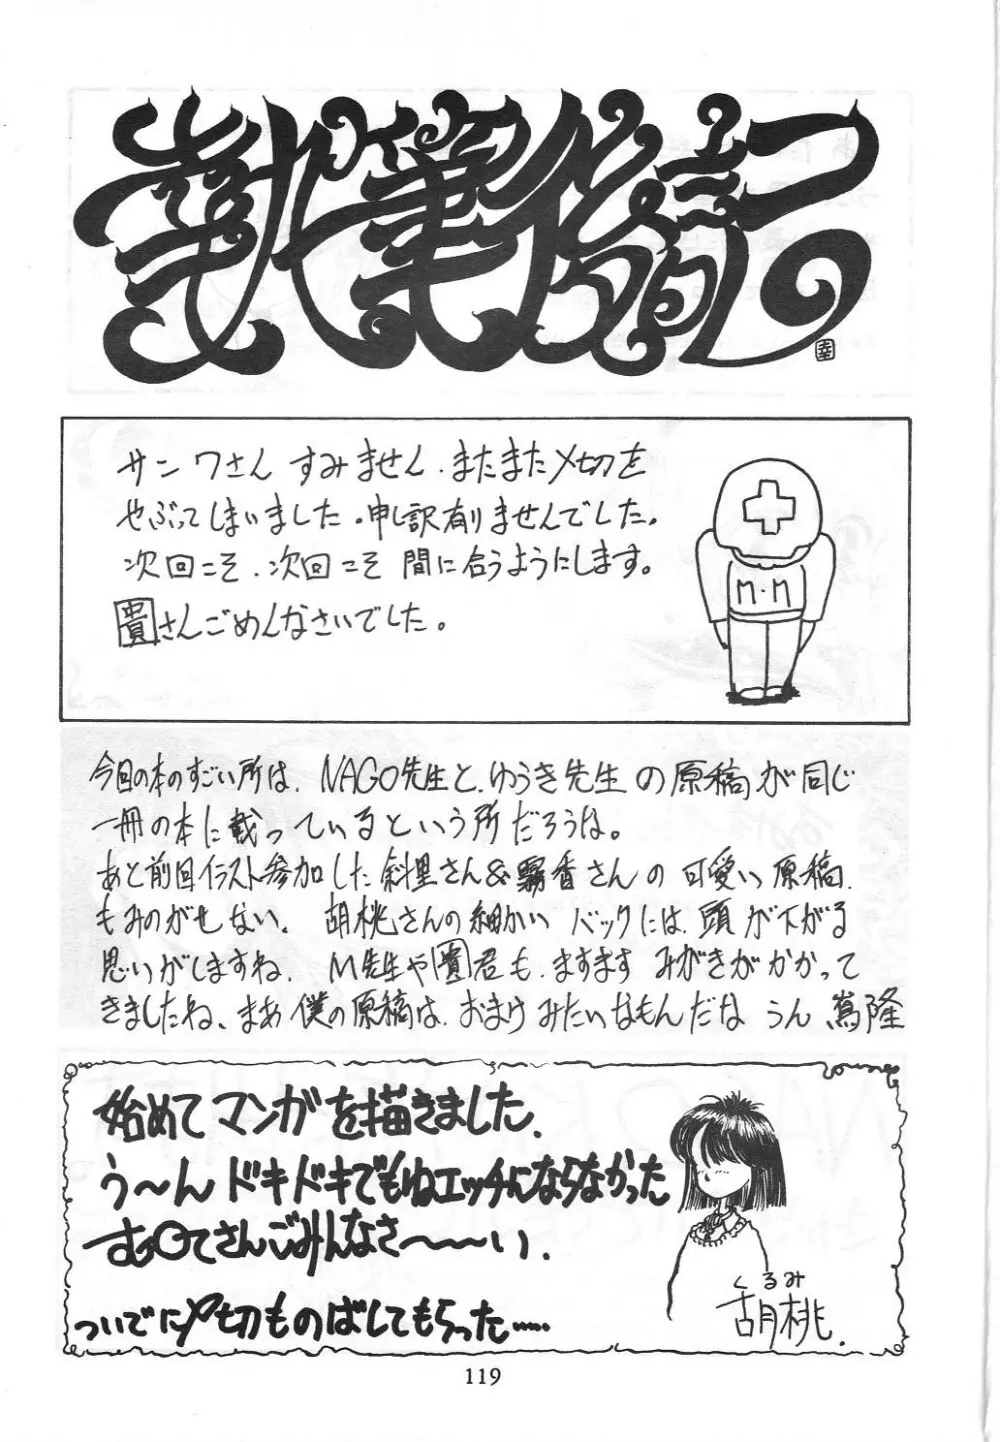 執筆後記
幸
サンワさん すみません、またまた〆切を
やぶってしまいました。申し訳有りませんでした。
次回こそ、次回こそ 間に合うようにします。
貴さんごめんなさいでした。
M・M
今回の本のすごい所は、NAGO先生と、ゆうき先生の原稿が同じ
一冊の本に載っているという所だろうな。
あと前回イラスト参加した斜里さん&霧香さんの可愛い原稿、
もみのがせない。胡桃さんの細かいバックには、頭が下がる
思いがしますね。M先生や貴君も、ますますみがきがかかって
きましたね、まあ僕の原稿は、おまけみたいなもんだな うん 嵩隆
始めてマンガを描きました、
う〜ん ドキドキでもねエッチにならなかった
む〇てさんごみんなさ〜〜〜い、
ついでに〆切ものばしてもらった……
くるみ
胡桃.
119